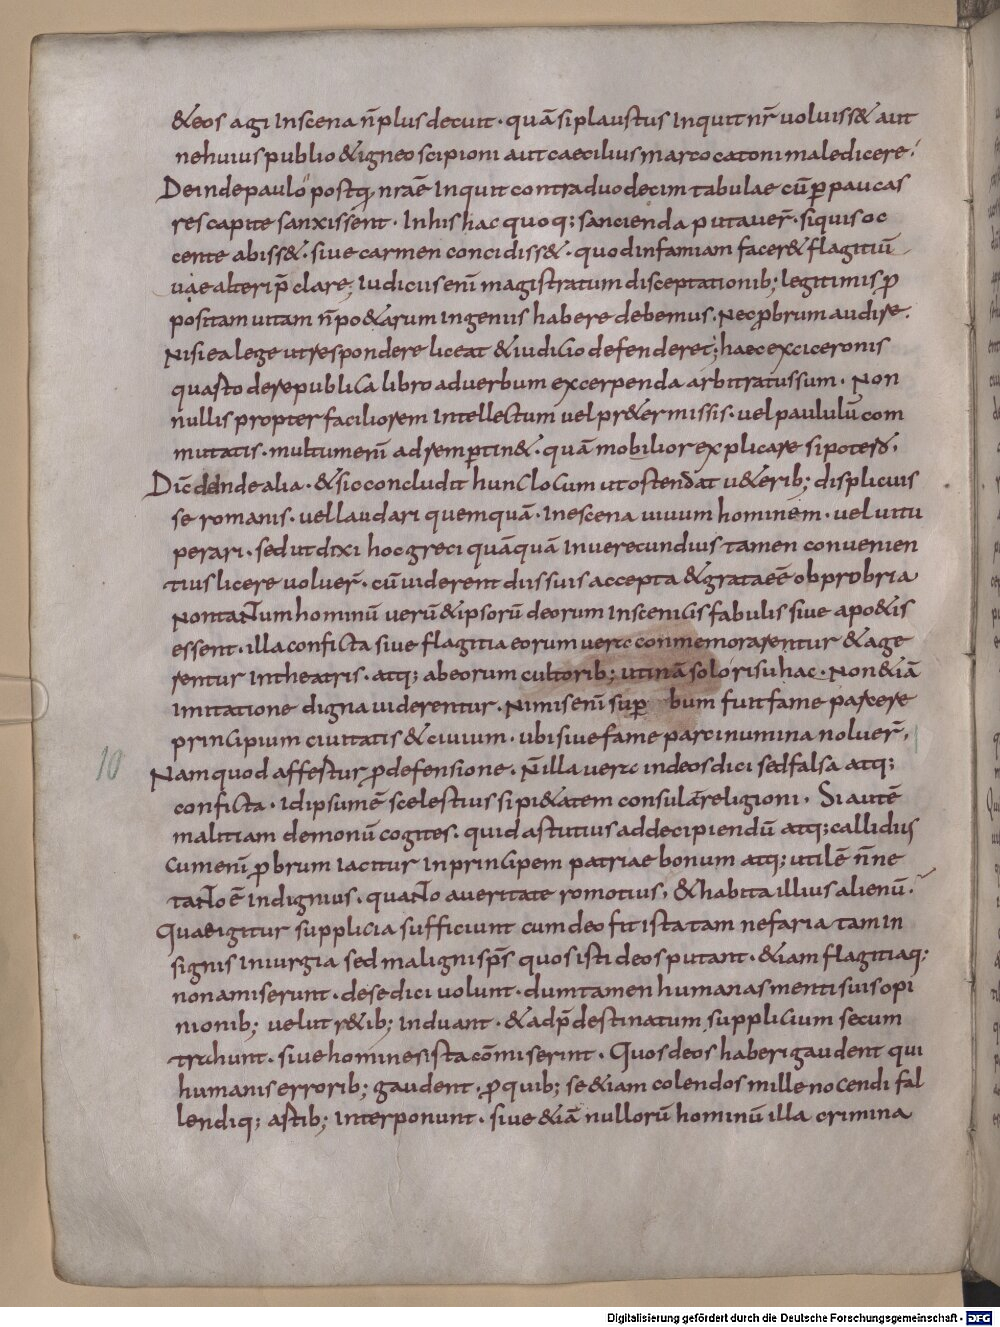 &eos agi Inscena n̄plus decuit · quā si plaustus Inquit nr̄ uoluiss& aut
nehuius publio & igneo scipioni aut caecilius marco catoni maledicere·
Deinde paulo postq, nrāe Inquit contra duodecim tabulae cū ꝑpaucas
res capite sanxissent · Inhis hac quoq; sancienda putauer̄ · siquis oc
cente abiss& · siue carmen concidiss& · quod infamiam facer& flagitiū
uae alteri p̄ clare, Iudiciis enī magistratum disceptationib; legitimis ꝓ
positam uitam n̄ po&arum Ingeniis habere debemus · Nec ꝓbrum audire·
Nisi ea lege ut respondere liceat & iudicio defenderet; haec exciceronis
quarto derepublica libro aduerbum excerpenda arbitratus sum · Non
nullis propter faciliorem Intellectum uel pr&ermissis · uel paululū com
mutatis · multum enī ad rem ꝑtin& · quā mobilior explicare si poter&·
Dic̄ deinde alia · & sic concludit hunc locum ut ostendat u&erib; displicuis
se romanis · uel laudari quemquā · Inescena uiuum hominem · uel uitu
perari · sed ut dixi hoc greci quāquā Inuerecundius tamen conuenien
tius licere uoluer̄ · cū uiderent diis suis accepta & grata eē obprobria
Non tantum hominū uerū & ipsorū deorum Inscenicis fabulis siue apo&is
essent · illa conficta siue flagitia eorum uera conmemorarentur & age
rentur In theatris · atq; abeorum cultorib; utinā solo risu hac · Non &iā
Imitatione digna uiderentur · Nimis enī sup bum fuit fame parcere
principium ciuitatis & ciuium · ubi siue fame parci numina noluer̄,
10
Nam quod affertur ꝓ defensione · N̄ illa uera in deos dici sed falsa atq;
conficta · id ipsum ē scelestius si pi&atem consulas religioni · Si autē
malitiam demonū cogites · quid astutius ad decipiendū atq; callidius
Cum enī ꝓbrum Iacitur In principem patriae bonum atq; utilē n̄ne
tanto ē Indignius · quanto a ueritate romotius, & habita illius alienū·
Quae igitur supplicia sufficiunt cum deo fit ista tam nefaria tam In
signis Iniurgia sed maligni sp̄s quos isti deos putant · &iam flagitia q;
non amiserunt · de se dici uolunt · dum tamen humanas mentis uis opi
nionib; uelut r&ib; Induant · & ad p̄destinatum supplicium secum
trahunt · siue homines ista cōmiserint · Quos deos haberi gaudent qui
humanis errorib; gaudent · ꝓ quib; se &iam colendos mille nocendi fal
lendiq; astib; Interponunt · siue &iā nullorū hominū illa crimina
Digitalisierung gefördert durch die Deutsche Forschungsgemeinschaft - DFG